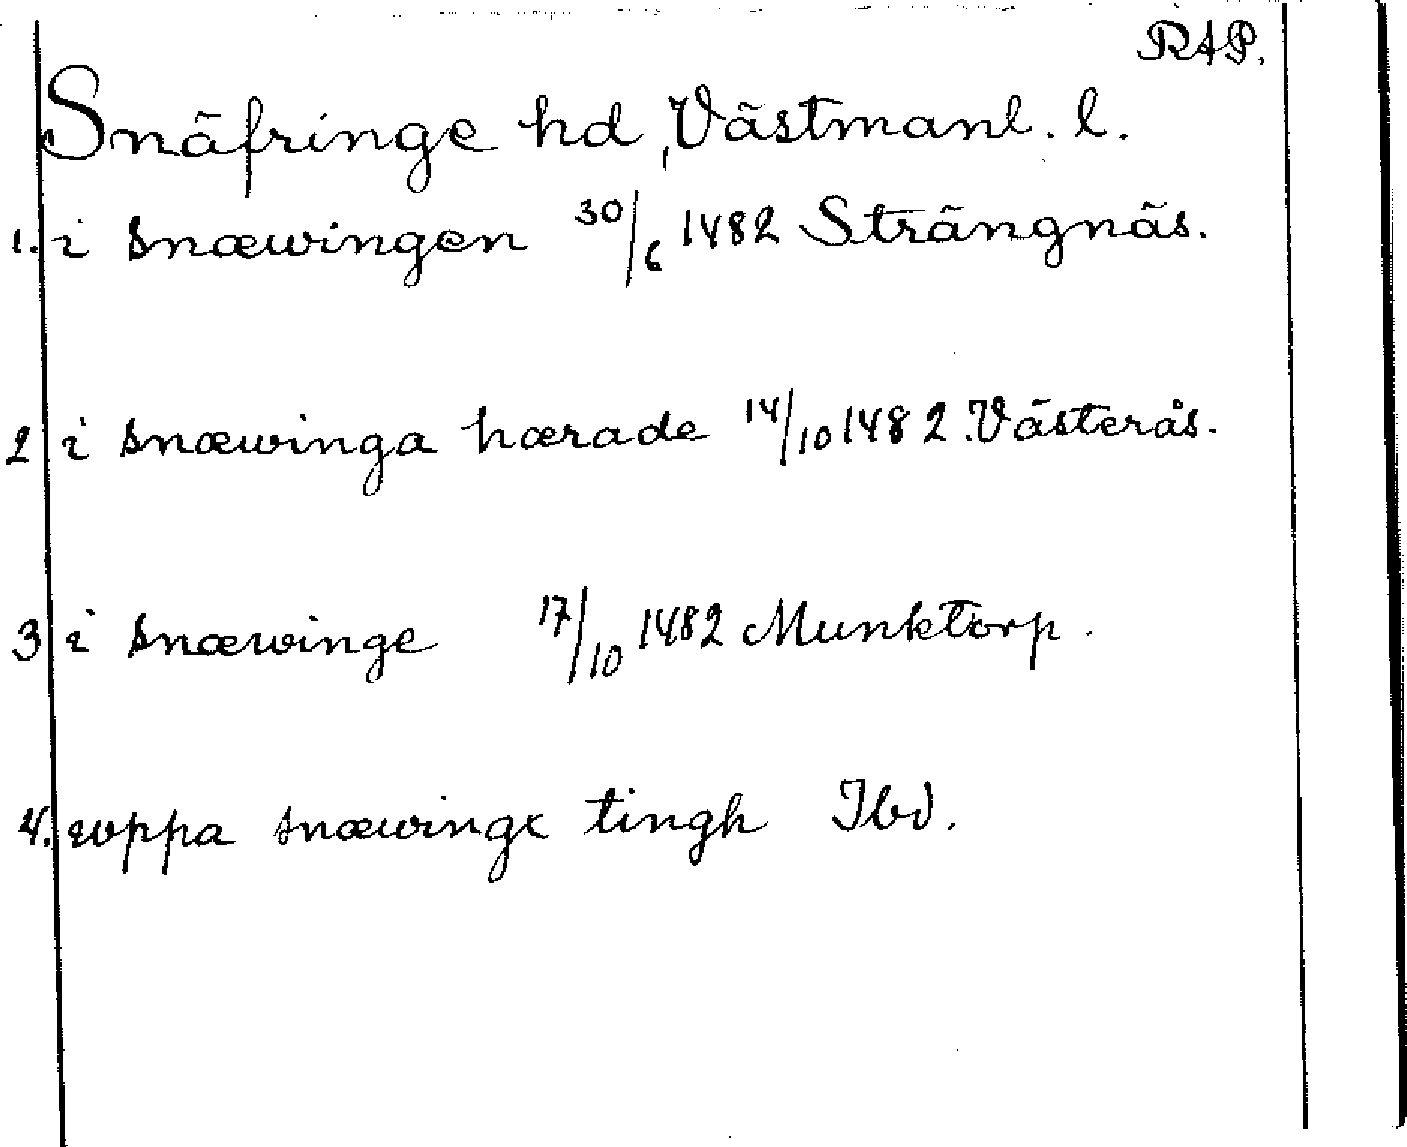 RAP.
Snäfringe hd, Västmanl. l.
1. i snæwingen 30/6 1482 Strängnäs.
2 i snæwinga hærade 14/10 1482. Västerås.
3 i snæwinge 17/10 1482 Munktorp.
4. wppa snæwinge tingh Ibd.